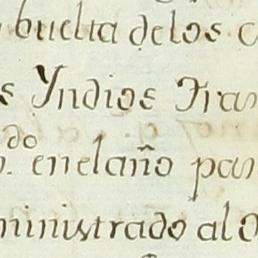 buelta delos
s Yndios Fran
do. enelaño pas
ministrado alo